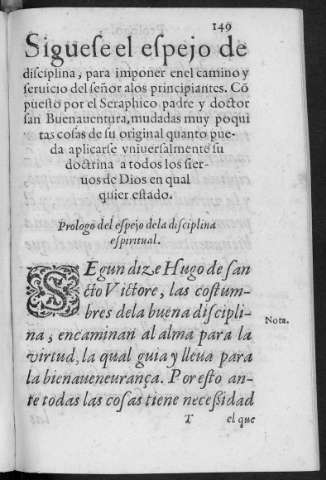 149
Siguese el espejo de
disciplina, para imponer enel camino y
seruicio del señor alos principiantes. Cō
puesto por el Seraphico padre y doctor
san Buenauentura, mudadas muy poqui
tas cosas de su original quanto pue-
da aplicarse vniuersalmente su
doctrina a todos los sier-
uos de Dios en qual
quier estado.
Prologo del espejo dela disciplina
espiritual.
SEgun dize Hugo de san
cto Victore, las costum-
bres dela buena discipli-
na, encaminan al alma para la
Nota.
virtud, la qual guia y lleua para
la bienaueneurança. Por esto an-
te todas las cosas tiene necessidad
T el que